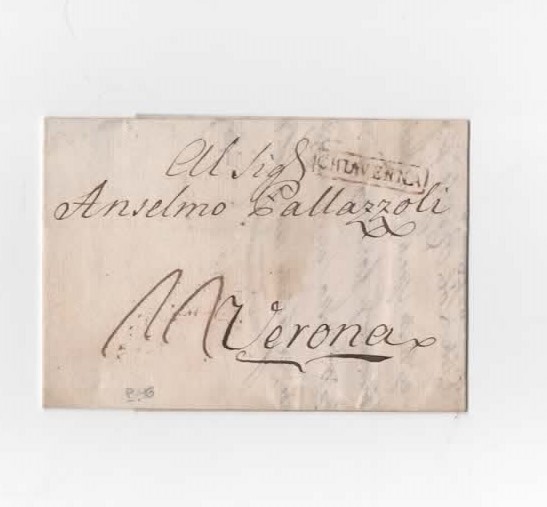 Al Sig
CHIAVENNA
Anselmo Pallazzoli
Verona